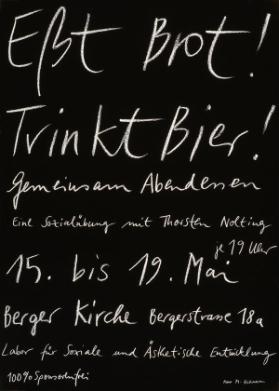 Eßt Brot!
Trinkt Bier!
Gemeinsam Abendessen
Eine Sozialübung mit Thorsten Nolting
je 19 Uhr
15. bis 19. Mai
Berger Kirche Bergerstrasse 18a
Labor für Soziale und Ästhetische Entwicklung
100% Sponsorfrei